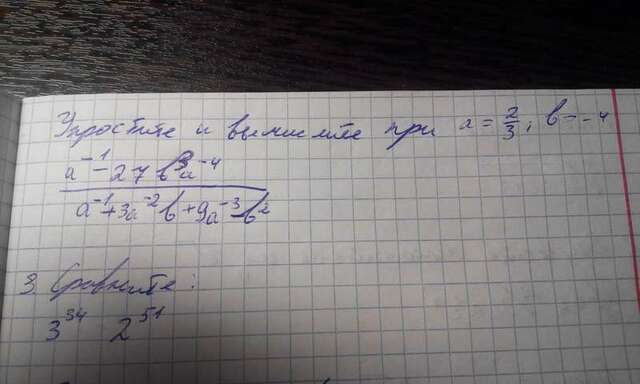 Упростите и вычислите при a = 2/3; b = -4
a⁻¹ - 27b³a⁻⁴
a⁻¹+3a⁻²b+9a⁻³b²
3. Сравните:
3³⁴ 2⁵¹